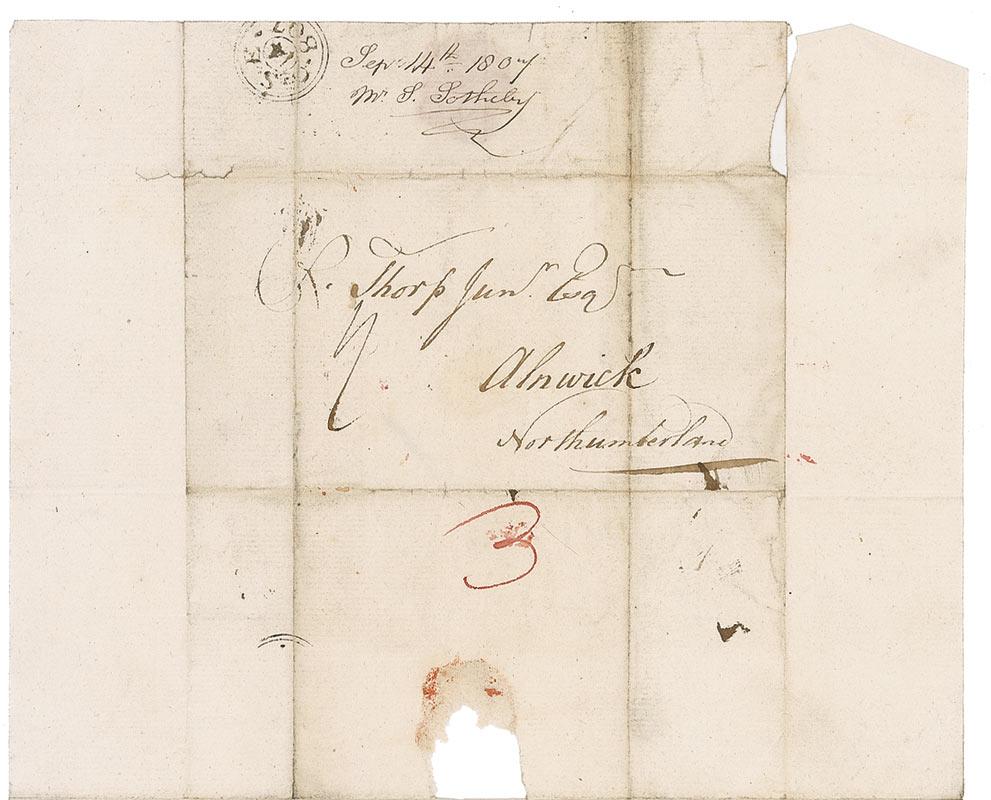 Sepr. 14th 1807
Mr. S. Sotheby
R. Thorp Junr. Esqr
Alnwick
Northumberland
3